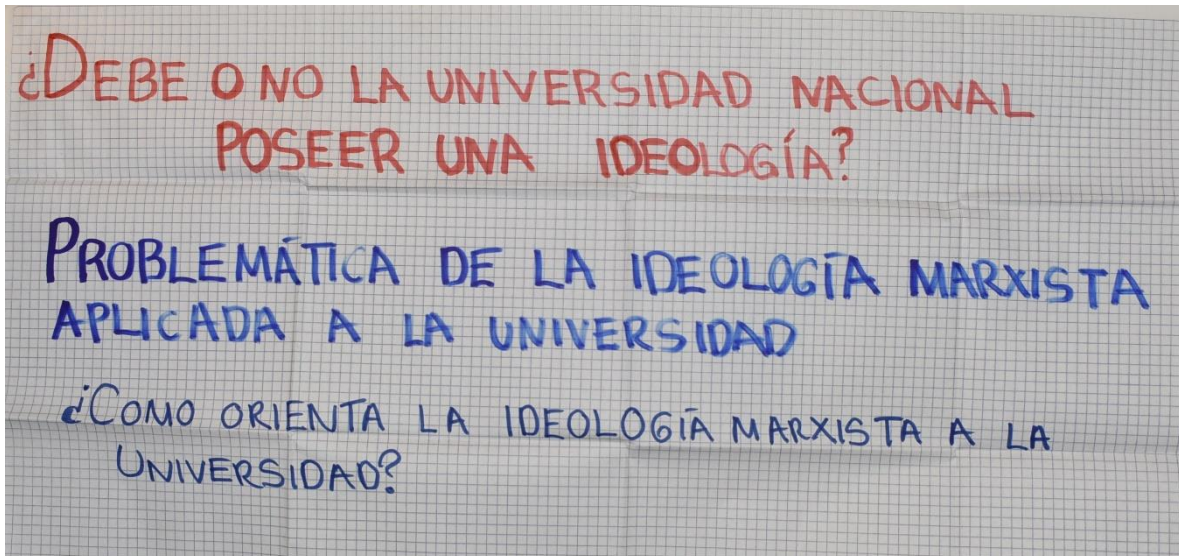 ¿DEBE O NO LA UNIVERSIDAD NACIONAL
POSEER UNA IDEOLOGÍA?
PROBLEMÁTICA DE LA IDEOLOGÍA MARXISTA
APLICADA A LA UNIVERSIDAD
¿COMO ORIENTA LA IDEOLOGÍA MARXISTA A LA
UNIVERSIDAD?